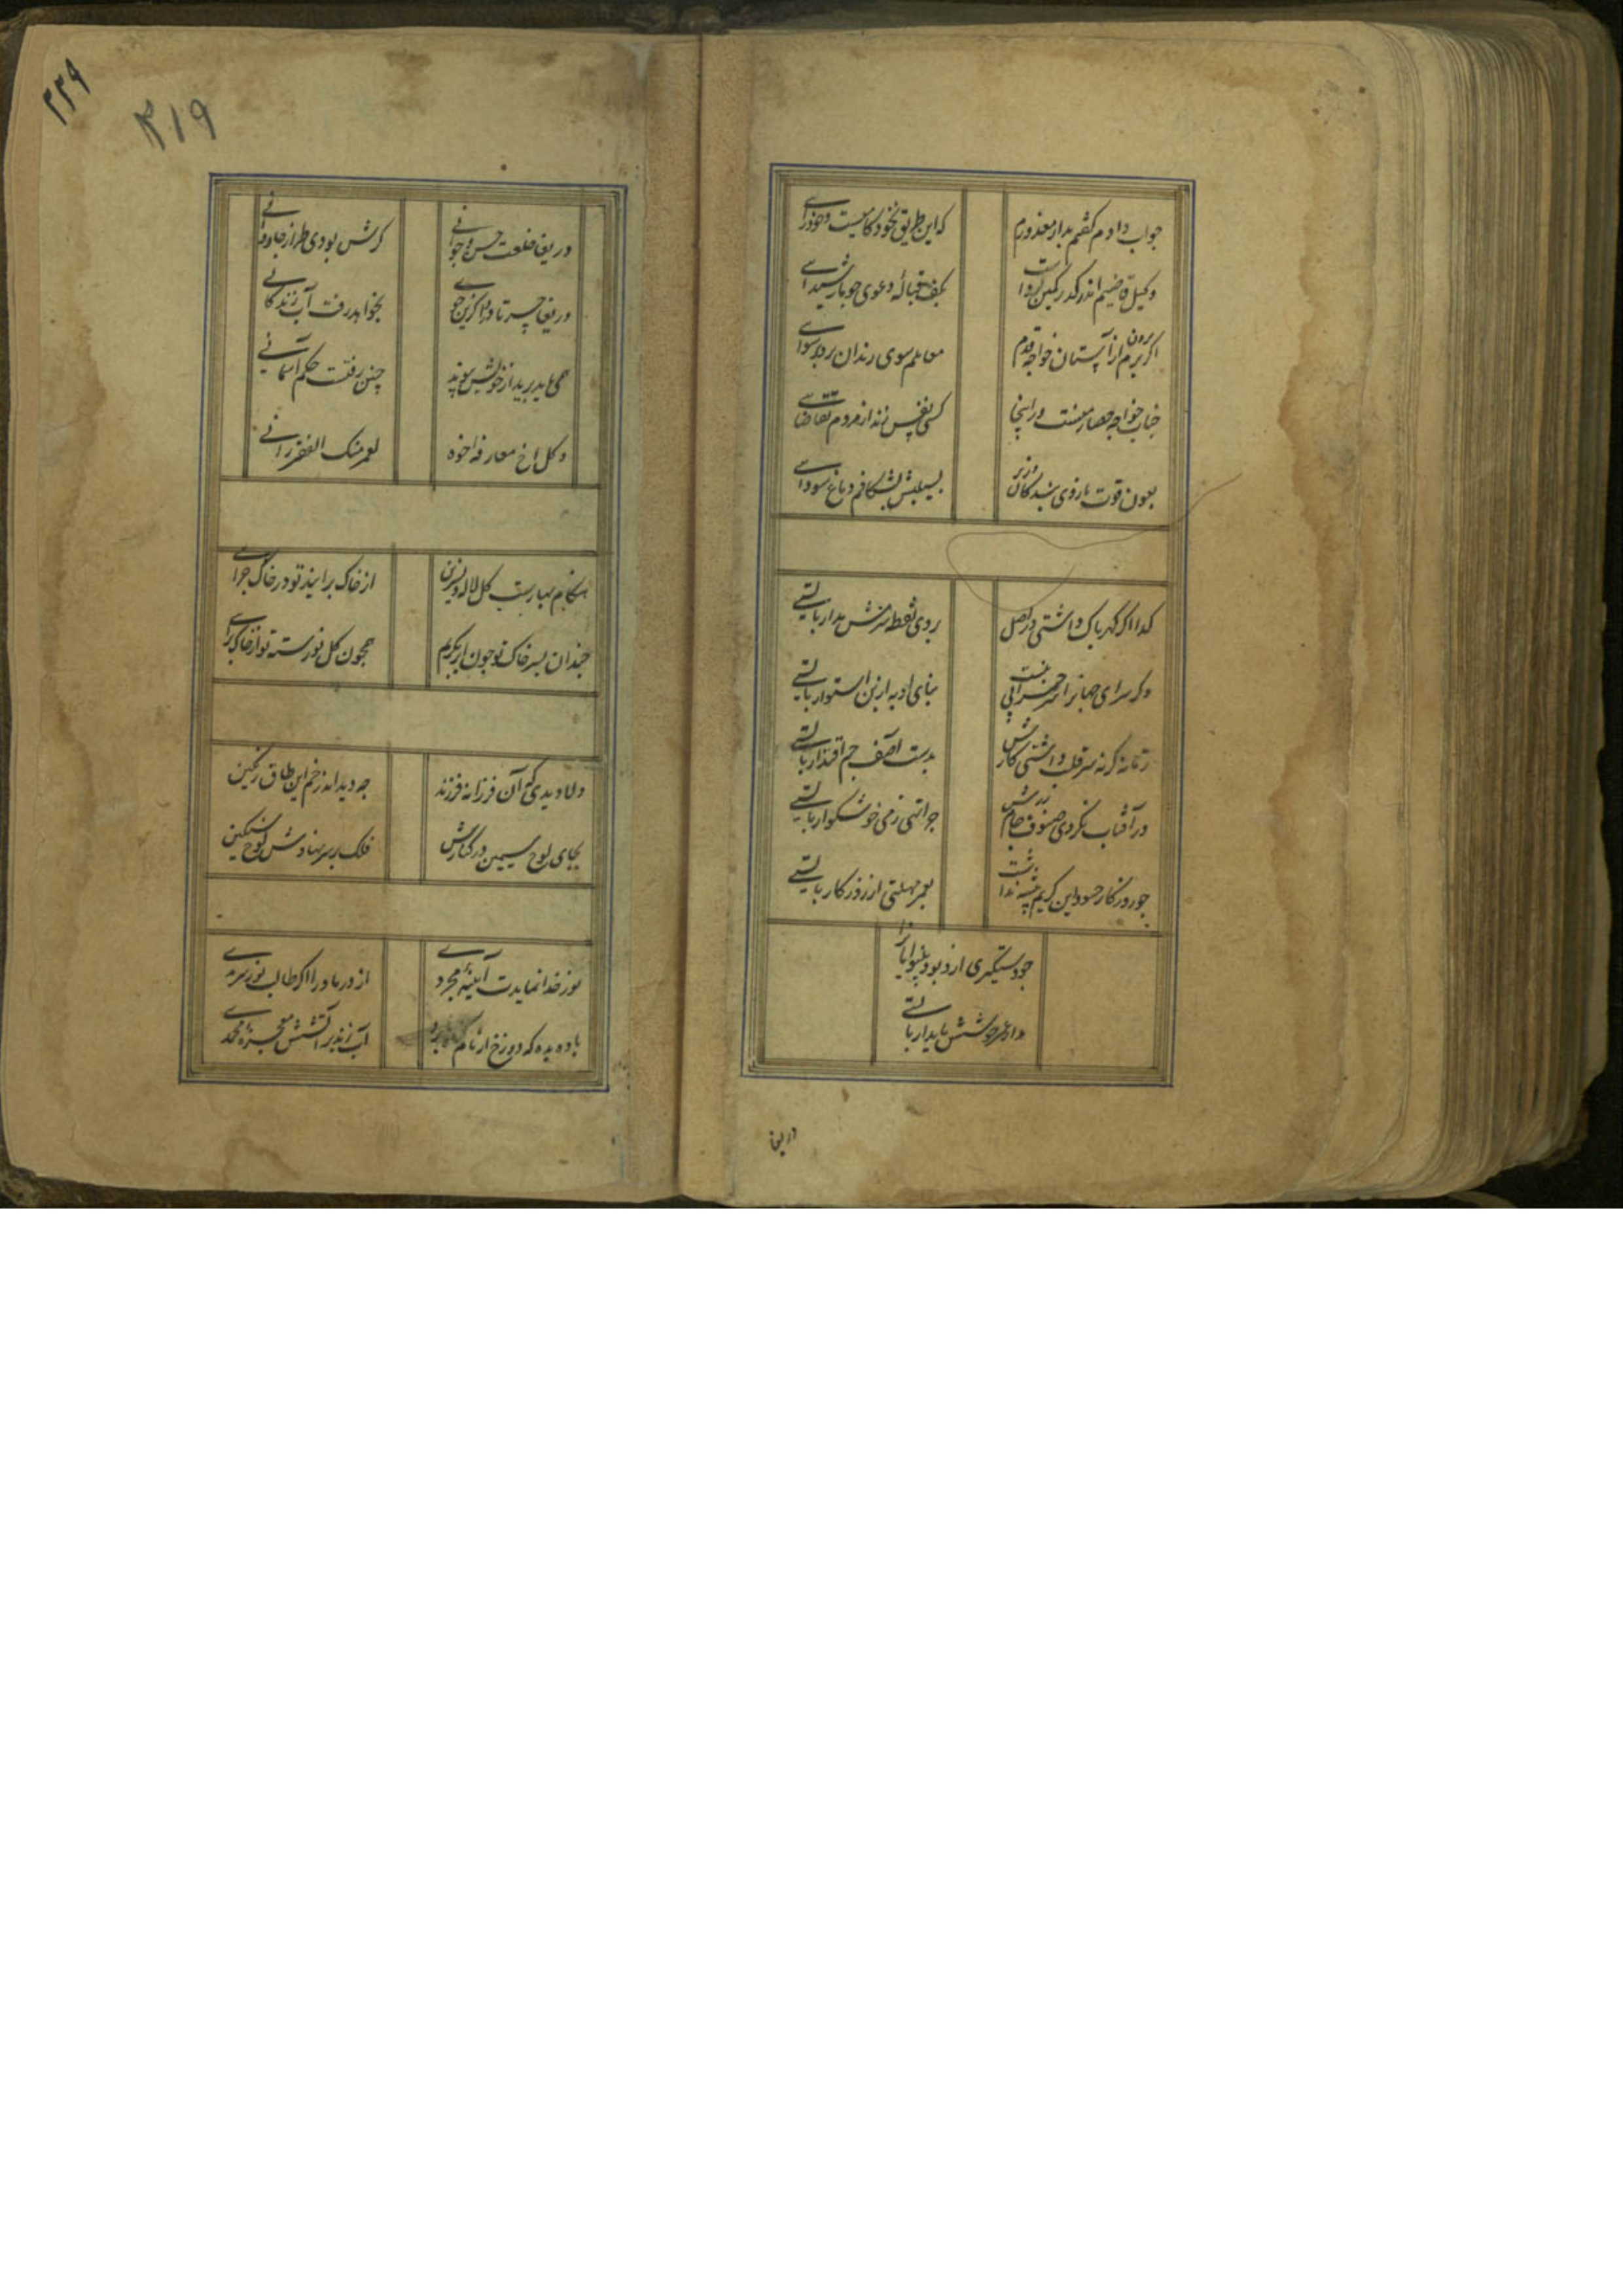 جواب دادم گفتم بدار معذورم
که این طریق نه خودکامیست و خودرایی
وکیل قاضیم اندر گذر کمین کردست
بکف قبالهٔ دعوی چو مار شیدایی
که گر برون نهم از آستان خواجه قدم
معاملم سوی زندان برد برسوایی
جناب خواجه حصار منست ور اینجا
کسی نفس زند از مردم تقاضایی
بعون قوت بازوی بندگان وزیر
بسیلیش بشکافم دماغ سودایی
گدا اگر گهر پاک داشتی در اصل
بر وی نقطه شرمش مدار بایستی
ور سرای جهانرا سر خرابی نیست
بنای او به ازین استوار بایستی
زمانه گر نه سر قلب داشتی کارش
بدست آصف جم اقتدار بایستی
ور آفتاب نکردی فسوس جام زرش
چرا تهی ز می خوشگوار بایستی
چو روزگار جز این کریم بیش نداشت
بعمر مهلتی از روزگار بایستی
در یغا
۲۲۹
۲۱۹
دریغا خلعت حسن و جوانی
گرش بودی طراز جاودانی
دریغا حسرتا دردا کزین جوی
بخواهد رفت آب زندگانی
همی باید برید از خویش و پیوند
چنین رفتست حکم آسمانی
وکل اخ مفارقه اخوه
لعمر ابیک الا الفرقدانی
هنگام بهارست گل و لاله و نسرین
از خاک برآیند تو در خاک چرایی
چندان بسر خاک تو چون ابر بگریم
همچون گل نورسته تو از خاک برآیی
دلا دیدی که آن فرزانه فرزند
چه دید اندر خم این طاق رنگین
بجای لوح سیمین در کنارش
فلک بر سر نهادش لوح سنگین
نور خدا نمایدت آینهٔ مجردی
از در ما درآ اگر طالب نور سرمدی
باده بده که دوزخ ار نام گناه ما برد
آب زند بر آتشش معجزهٔ محمدی